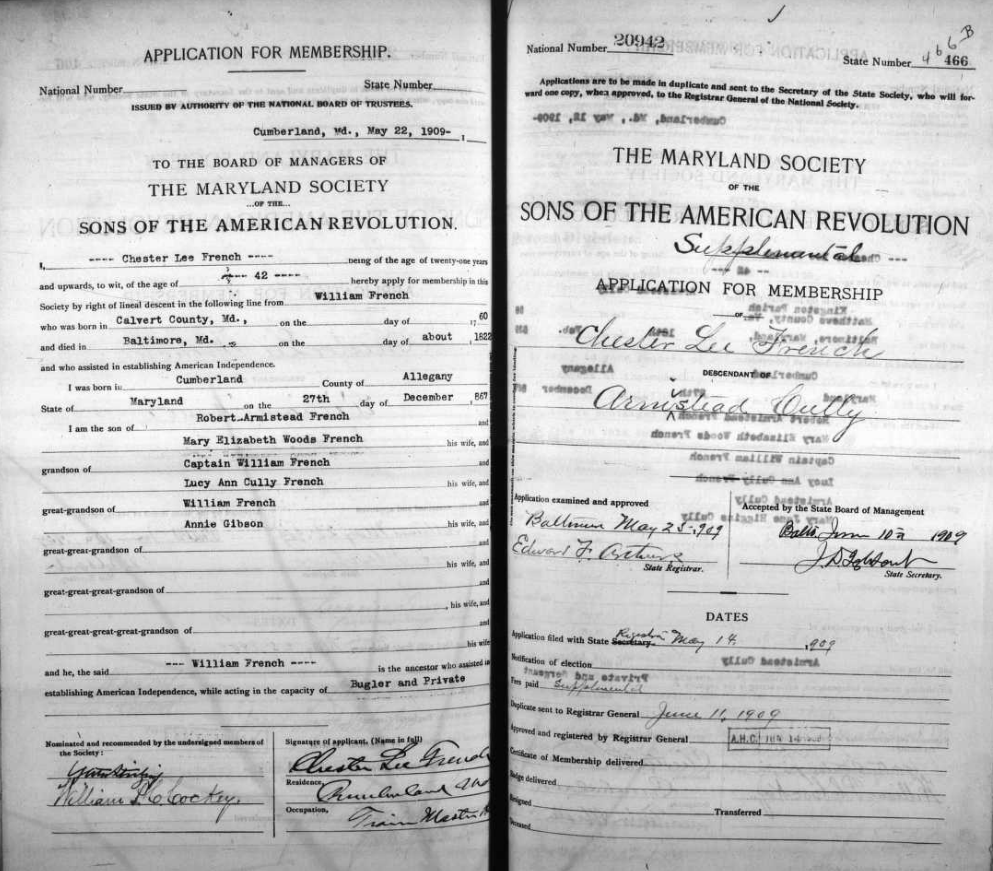 APPLICATION FOR MEMBERSHIP.
National Number State Number
ISSUED BY AUTHORITY OF THE NATIONAL BOARD OF TRUSTEES.
Cumberland, Md., May 22, 1909-
TO THE BOARD OF MANAGERS OF
THE MARYLAND SOCIETY
...OF THE...
SONS OF THE AMERICAN REVOLUTION.
I, ---- Chester Lee French ---- being of the age of twenty-one years
and upwards, to wit, of the age of ---- 42 ---- hereby apply for membership in this
Society by right of lineal descent in the following line from William French
who was born in Calvert County, Md., on the day of 1760
and died in Baltimore, Md. on the day of about 1822
and who assisted in establishing American Independence.
I was born in Cumberland County of Allegany
State of Maryland on the 27th day of December 1867
I am the son of Robert Armistead French and
Mary Elizabeth Woods French his wife, and
grandson of Captain William French and
Lucy Ann Cully French his wife, and
great-grandson of William French and
Annie Gibson his wife, and
great-great-grandson of and
his wife, and
great-great-great-grandson of and
, his wife, and
great-great-great-great-grandson of and
his wife
and he, the said --- William French ---- is the ancestor who assisted in
establishing American Independence, while acting in the capacity of Bugler and Private
Nominated and recommended by the undersigned members of
the Society:
William Cockey.
Signature of applicant. (Name in full)
Chester Lee French
Residence, Cumberland Md
Occupation, Train Master
National Number 20942
State Number 466 B 466
Applications are to be made in duplicate and sent to the Secretary of the State Society, who will for-
ward one copy, when approved, to the Registrar General of the National Society.
THE MARYLAND SOCIETY
OF THE
SONS OF THE AMERICAN REVOLUTION
Supplemental
APPLICATION FOR MEMBERSHIP
OF
Chester Lee French
DESCENDANT OF
Armistead Cully
Application examined and approved
Baltimore May 25 1909
Edward F.
State Registrar.
Accepted by the State Board of Management
Balto. June 10 1909
State Secretary.
DATES
Application filed with State Secretary Registrar May 14 1909
Notification of election
Fees paid Supplemental
Duplicate sent to Registrar General June 11, 1909
Approved and registered by Registrar General A.H.C.
Certificate of Membership delivered
Badge delivered
Resigned Transferred
Deceased